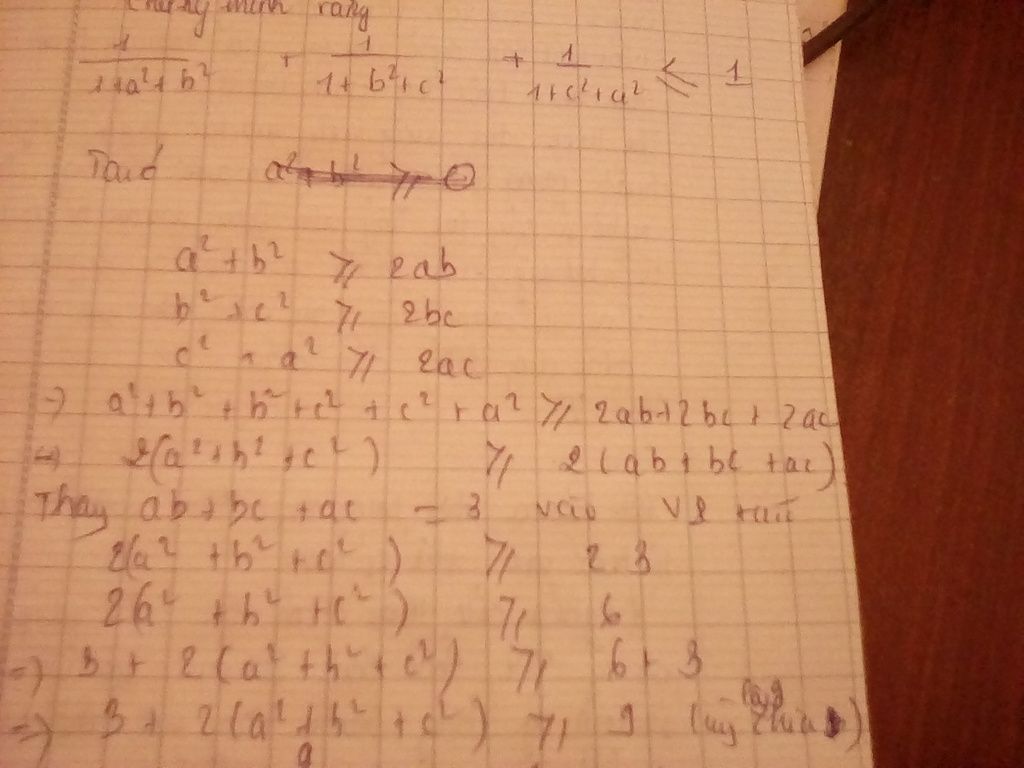 minh rằng
1/(1+a²+b²) + 1/(1+b²+c²) + 1/(1+c²+a²) ≤ 1
Ta có a² + b² ≥ 0
a² + b² ≥ 2ab
b² + c² ≥ 2bc
c² + a² ≥ 2ac
=> a² + b² + b² + c² + c² + a² ≥ 2ab + 2bc + 2ac
=> 2(a² + b² + c²) ≥ 2(ab + bc + ac)
Thay ab + bc + ac = 3 vào
2(a² + b² + c²) ≥ 2 3
2(a² + b² + c²) ≥ 6
=> 3 + 2(a² + b² + c²) ≥ 6 + 3
=> 3 + 2(a² + b² + c²) ≥ 9